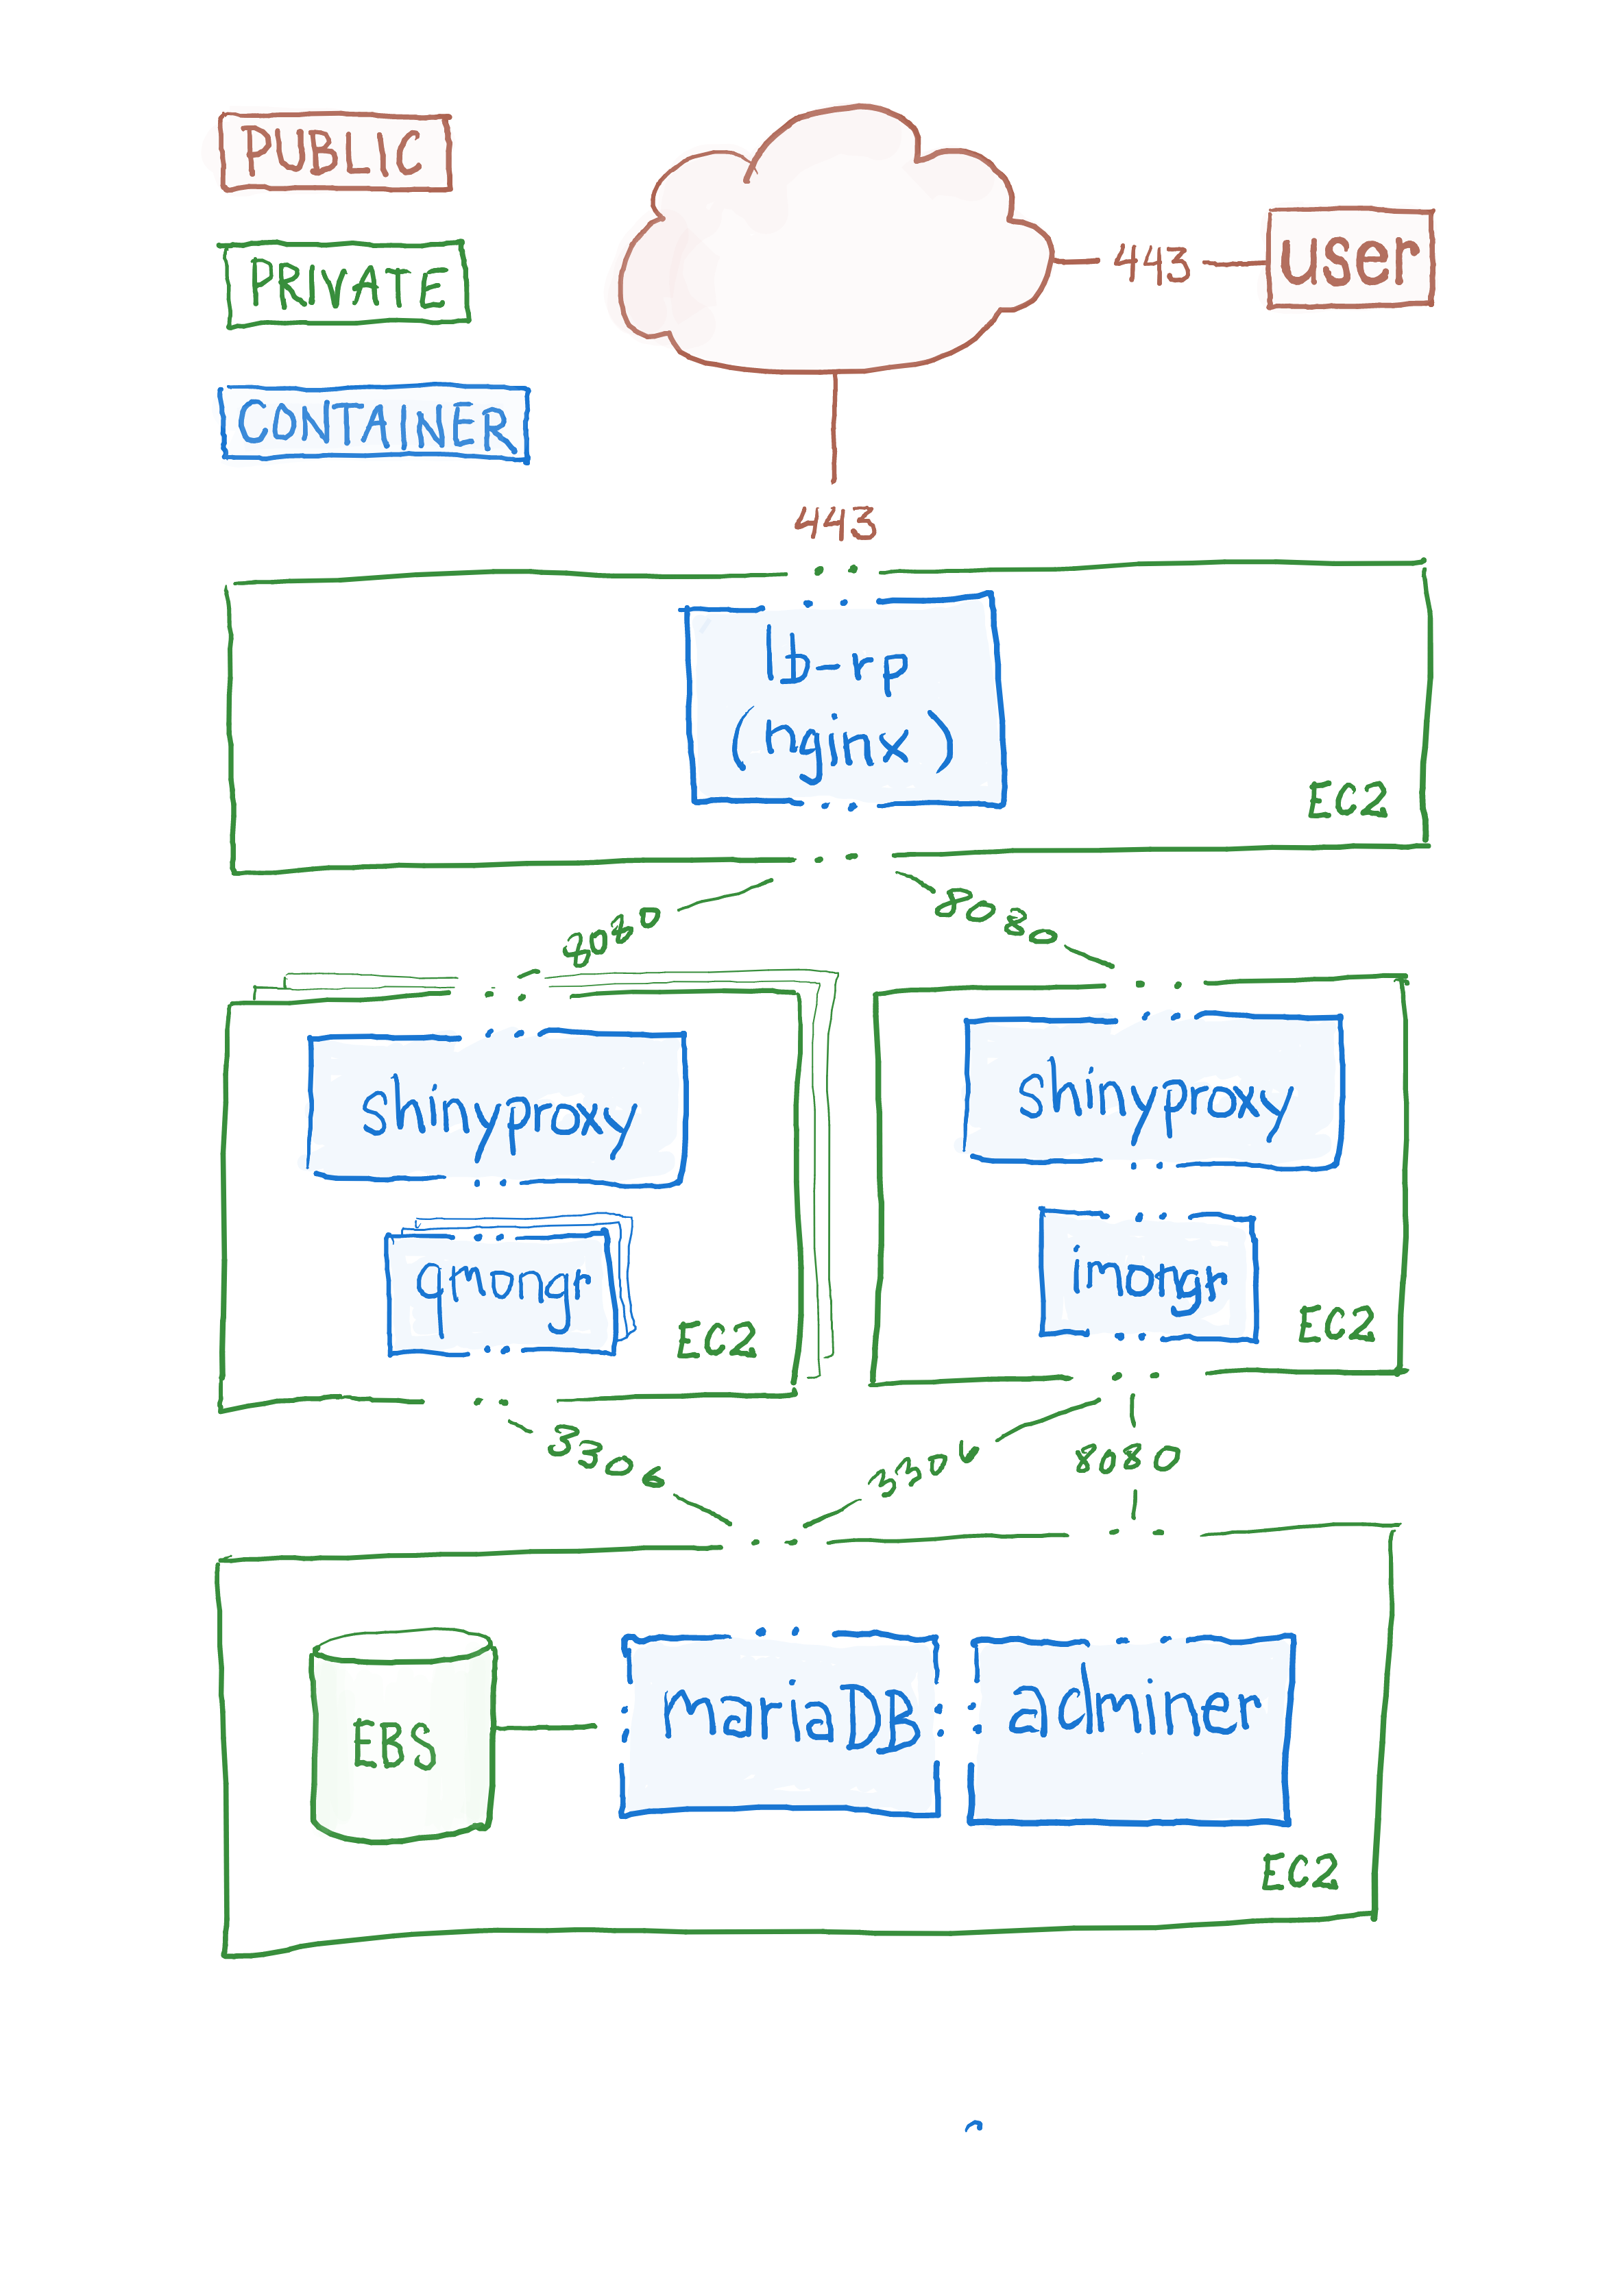 PUBLIC
PRIVATE
CONTAINER
443
user
443
lb-rp
(nginx)
EC2
8080
8080
shinyproxy
qmongr
EC2
shinyproxy
imongr
EC2
3306
3306
8080
EBS
mariaDB
adminer
EC2